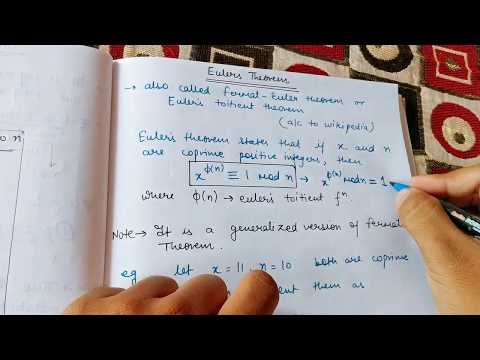 Eulers Theorem
→ also called fermat-Euler theorem or
Euler's totient theorem
(a/c to wikipedia)
Euler's theorem states that if x and n
are coprime positive integers, then
x^φ(n) ≡ 1 mod n → x^φ(n) mod n = 1
where φ(n) → euler's totient fⁿ.
Note → It is a generalized version of fermat
Theorem.
eg let x = 11, n = 10 both are coprime
them as